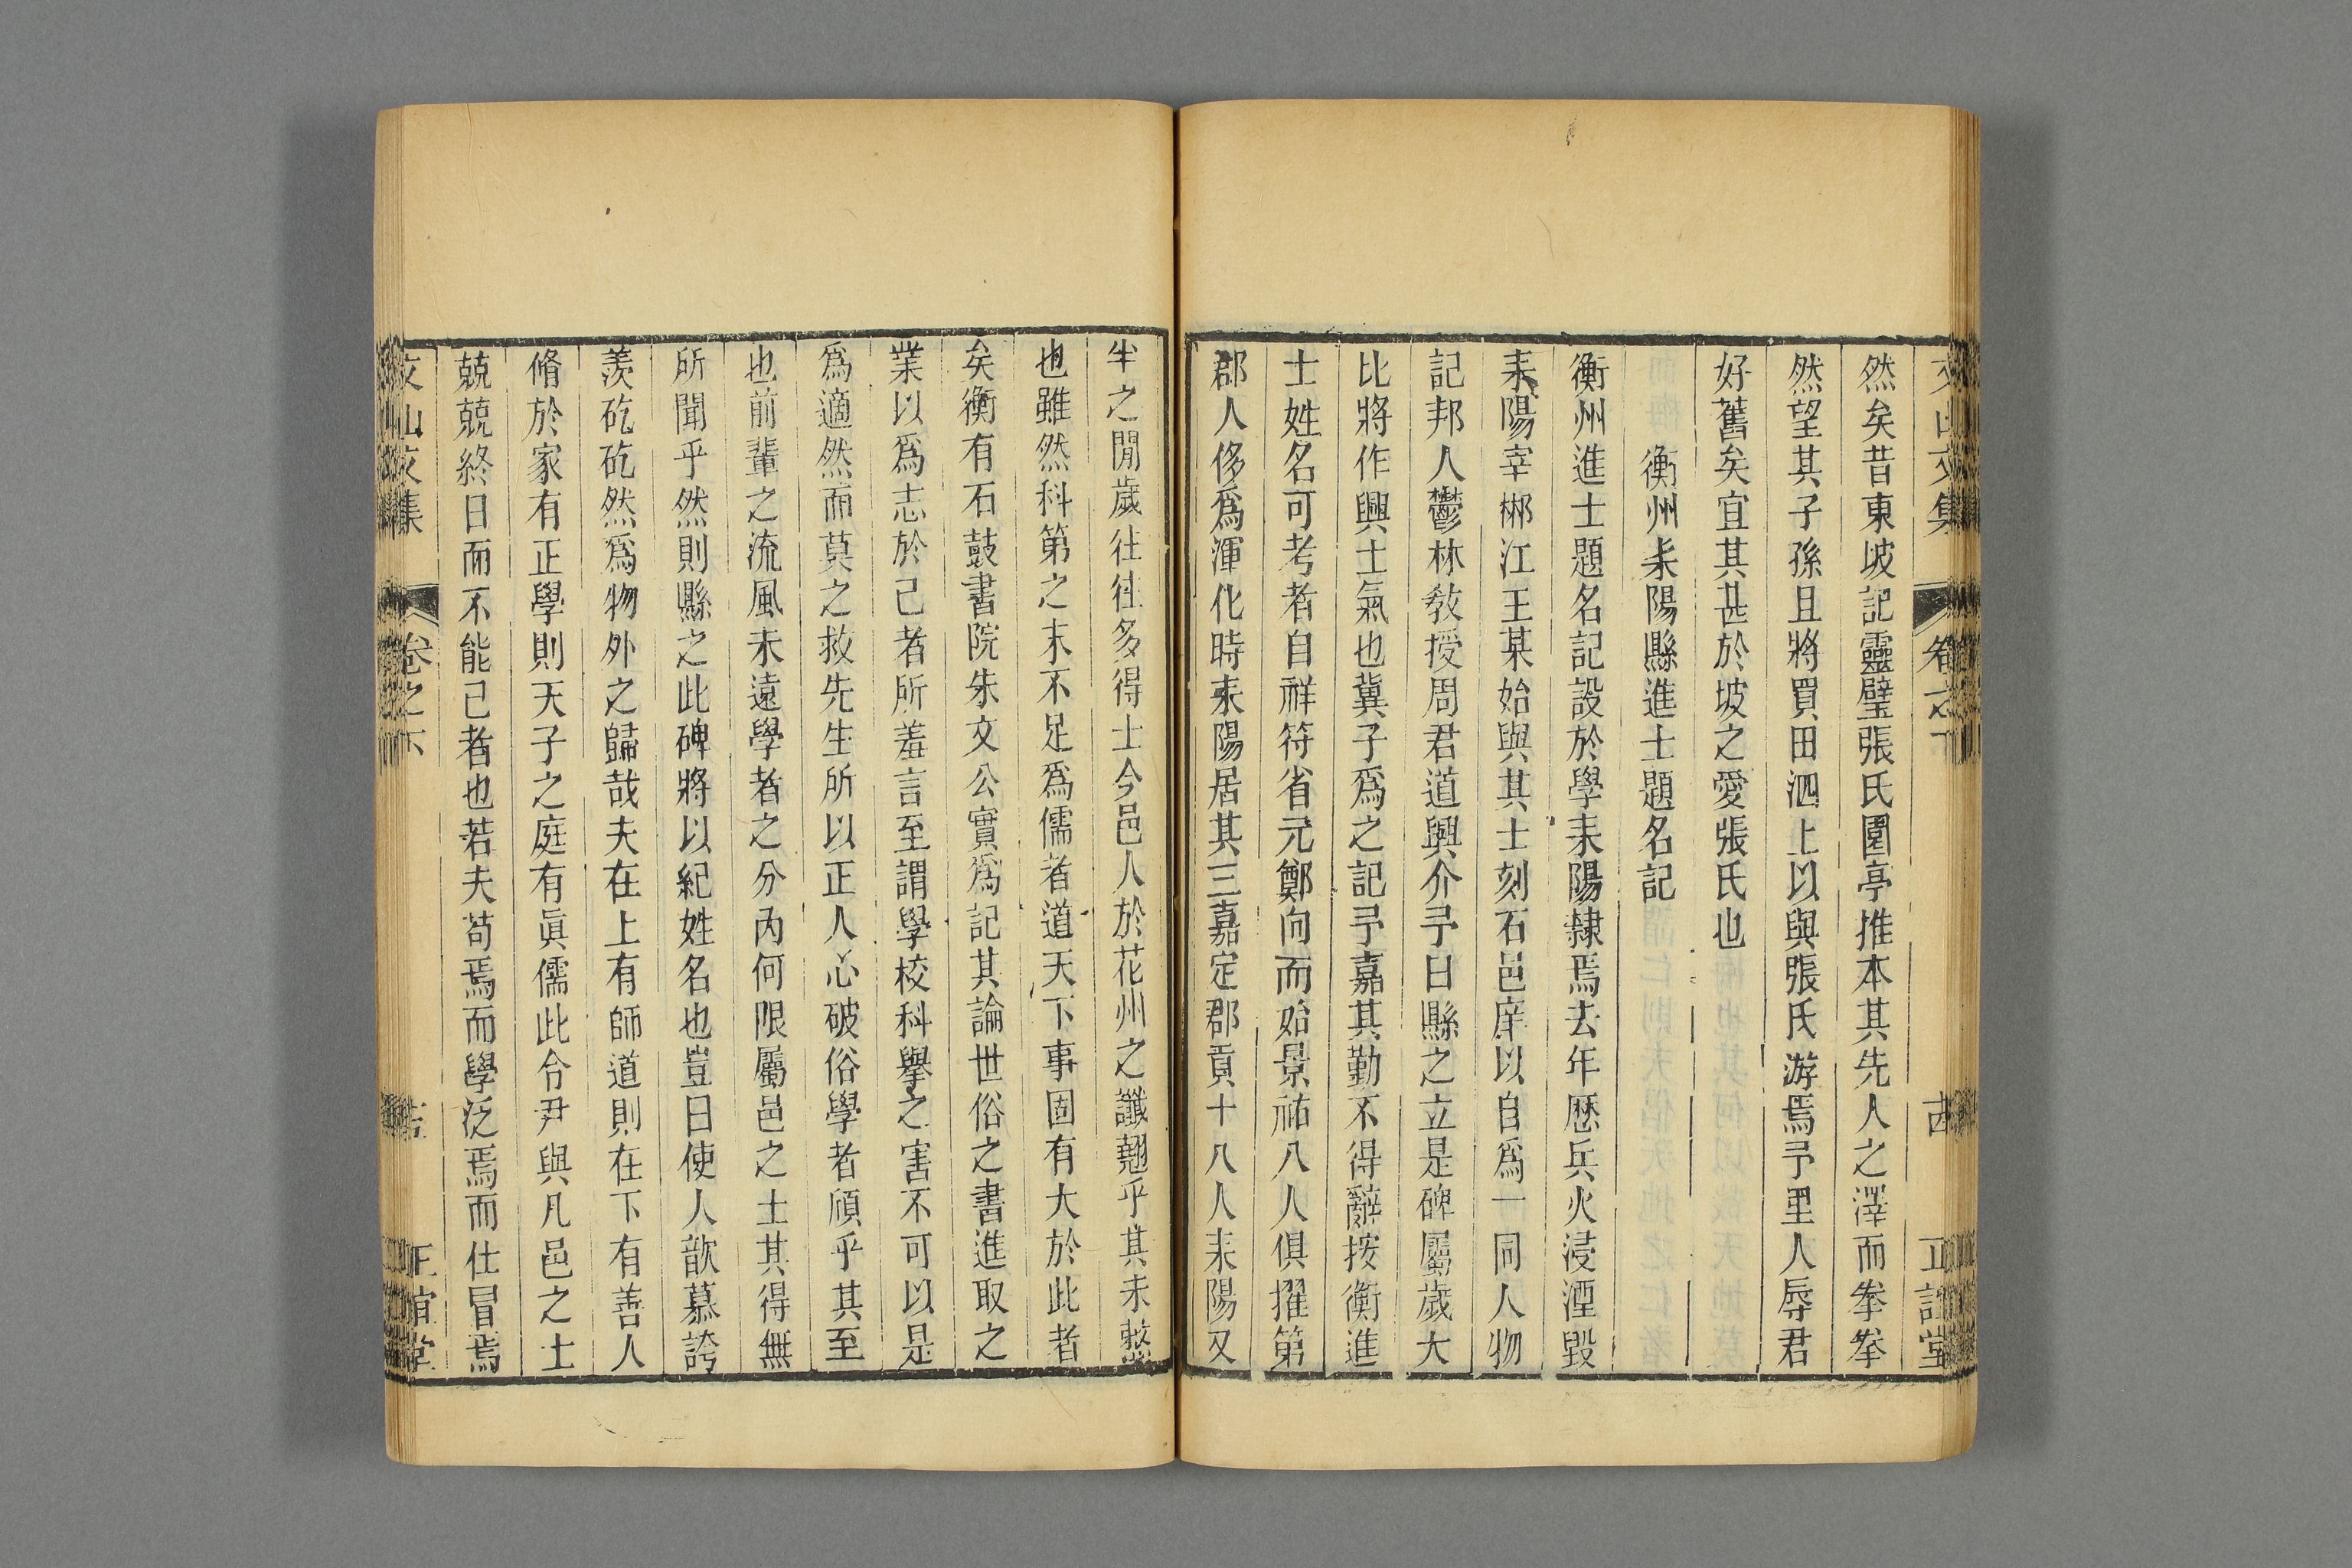 文山文集 卷之下 十四 正誼堂
然矣昔東坡記靈璧張氏園亭推本其先人之澤而拳拳
然望其子孫且將買田泗上以與張氏游焉予里人辱君
好舊矣宜其甚於坡之愛張氏也
衡州耒陽縣進士題名記
衡州進士題名記設於學耒陽隸焉去年歷兵火浸湮毀
耒陽宰郴江王某始與其士刻石邑庠以自爲一同人物
記邦人鬱林敎授周君道興介予曰縣之立是碑屬歲大
比將作興士氣也冀子爲之記予嘉其勤不得辭按衡進
士姓名可考者自祥符省元鄭向而始景祐八人俱擢第
郡人侈爲渾化時耒陽居其三嘉定郡貢十八人耒陽又
半之閒歲往往多得士今邑人於花州之讖翹乎其未憖
也雖然科第之末不足爲儒者道天下事固有大於此者
矣衡有石鼓書院朱文公實爲記其論世俗之書進取之
業以爲志於己者所羞言至謂學校科舉之害不可以是
爲適然而莫之救先生所以正人心破俗學者頎乎其至
也前輩之流風未遠學者之分內何限屬邑之士其得無
所聞乎然則縣之此碑將以紀姓名也豈曰使人歆慕誇
羨矻矻然爲物外之歸哉夫在上有師道則在下有善人
脩於家有正學則天子之庭有眞儒此令尹與凡邑之士
兢兢終日而不能己者也若夫苟焉而學泛焉而仕冒焉
文山文集 卷之下 正誼堂